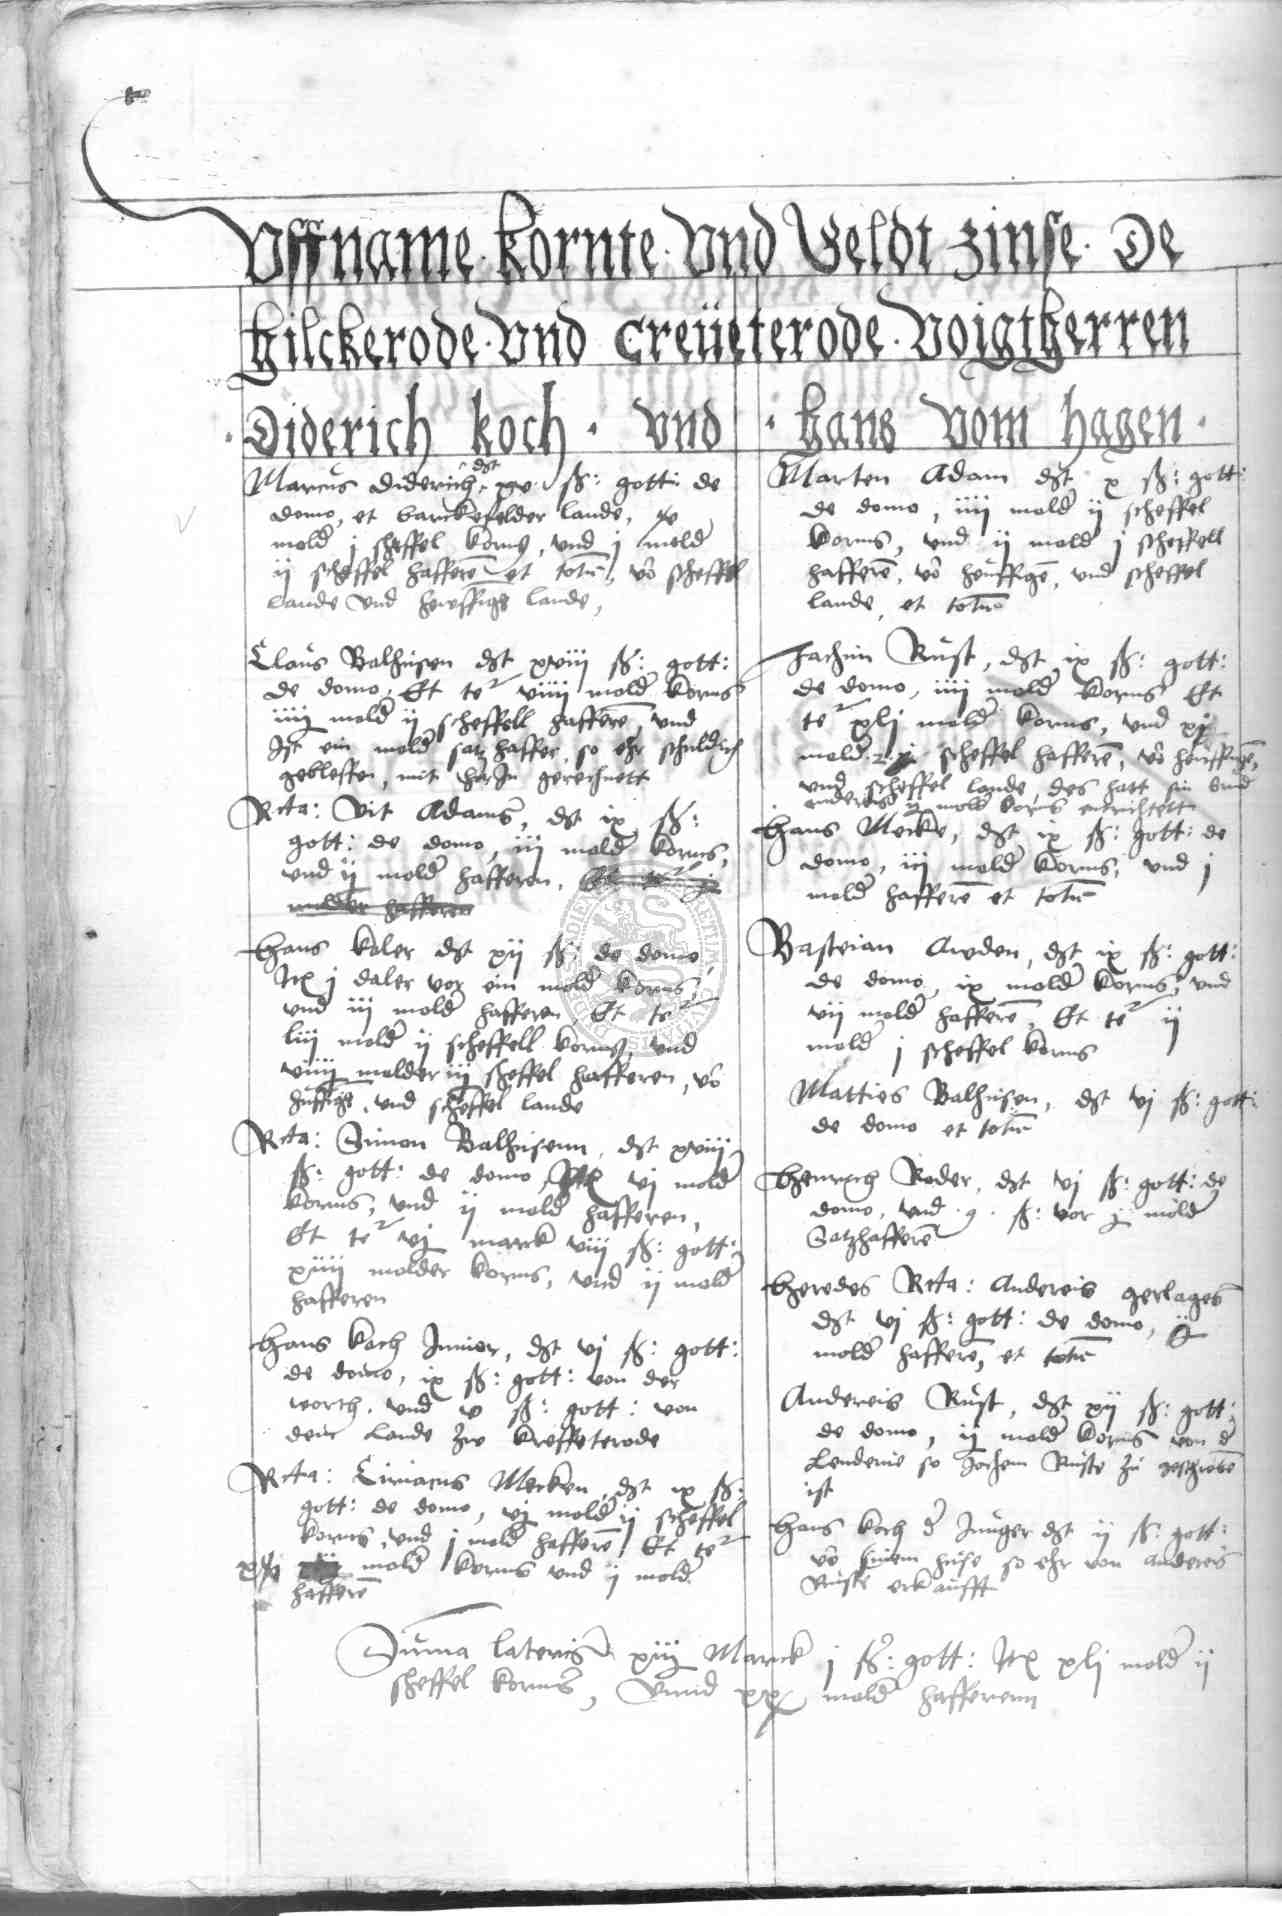 Uffname kornte Und Geldt zinse De
Hilckerode Und Creüeterode Voigtherren
Diderich koch Und Hans Vom hagen
Marcus Diderich dst xv ß: gott: de
domo, et barckefelder lande,
mold j scheffel korns, und j mold
ij scheffel hafferē et totū, vō scheffel
Lande Und lande,
Claus Balhusen dst xviij ß: gott:
de domo, Et te viiij mold korns
iiij mold ij scheffell hafferē, und
Ist ein mold satz haffer, so ehr schuldich
geblessen, mit gerechnett
Rcta: Vit Adams, dst ix ß:
gott: de domo, iij mold korns,
und ij mold hafferen,
molder hafferen
Hans koler dst xij ß: de domo,
Itē j daler vor ein mold korns,
und iij mold hafferen, Et te
liij mold ij scheffell korns, und
viiij molder iij scheffel hafferen, vō
und scheffel lande
Rcta: Simon Balhusenn, dst xviij
ß: gott: de domo, Itē vj mold
korns, und ij mold hafferen,
Et te vj marck viij ß: gott:
xiiij molder korns, und ij mold
hafferen
Hans koch Junior, dst vj ß: gott:
de domo, ix ß: gott: von der
worth, und v ß: gott: von
dem Lande zue kreffeterode
Rcta: Ciriacus Mecken, dst ix ß:
gott: de domo, vj mold ij scheffel
korns, und j mold hafferē Et te
mold korns und ij mold
hafferē
Marten Adam dst x ß: gott:
de domo, iiij mold ij scheffel
korns, und ij mold j scheffell
hafferē, vō und scheffel
lande, et totū
Jachim Rust, dst ix ß: gott:
de domo, iiij mold korns Et
te xlj mold korns, und xj
mold scheffel hafferē, vō
und scheffel lande, des hatt sin
anderes ij mold korns entrichtett
Hans Mecke, dst ix ß: gott: de
domo, iij mold korns, und j
mold hafferē et totū
Basteian Arden, dst ix ß: gott:
de domo, ix mold korns, und
vij mold hafferē, Et te ij
mold j scheffel korns
Matties Balhusen, dst vj ß: gott:
de domo et totū
Henrich Roder, dst vj ß: gott: de
domo, und 9 ß: vor j mold
Satzhafferē
Heredes Rcta: Andereis gerlages
dst vj ß: gott: de domo, ij
mold hafferē, et totū
Andereis Rust, dst xij ß: gott:
de domo, ij mold korns von d
Lenderie so Jochem Ruste zu geschrebē
ist
Hans koch d Junger dst ij ß: gott:
vō sinem huse so ehr von Anderes
Ruste erkaufft
Suma lateris xiij Marck j ß: gott: Itē xlj mold ij
scheffel korns, Unnd xx mold hafferenn